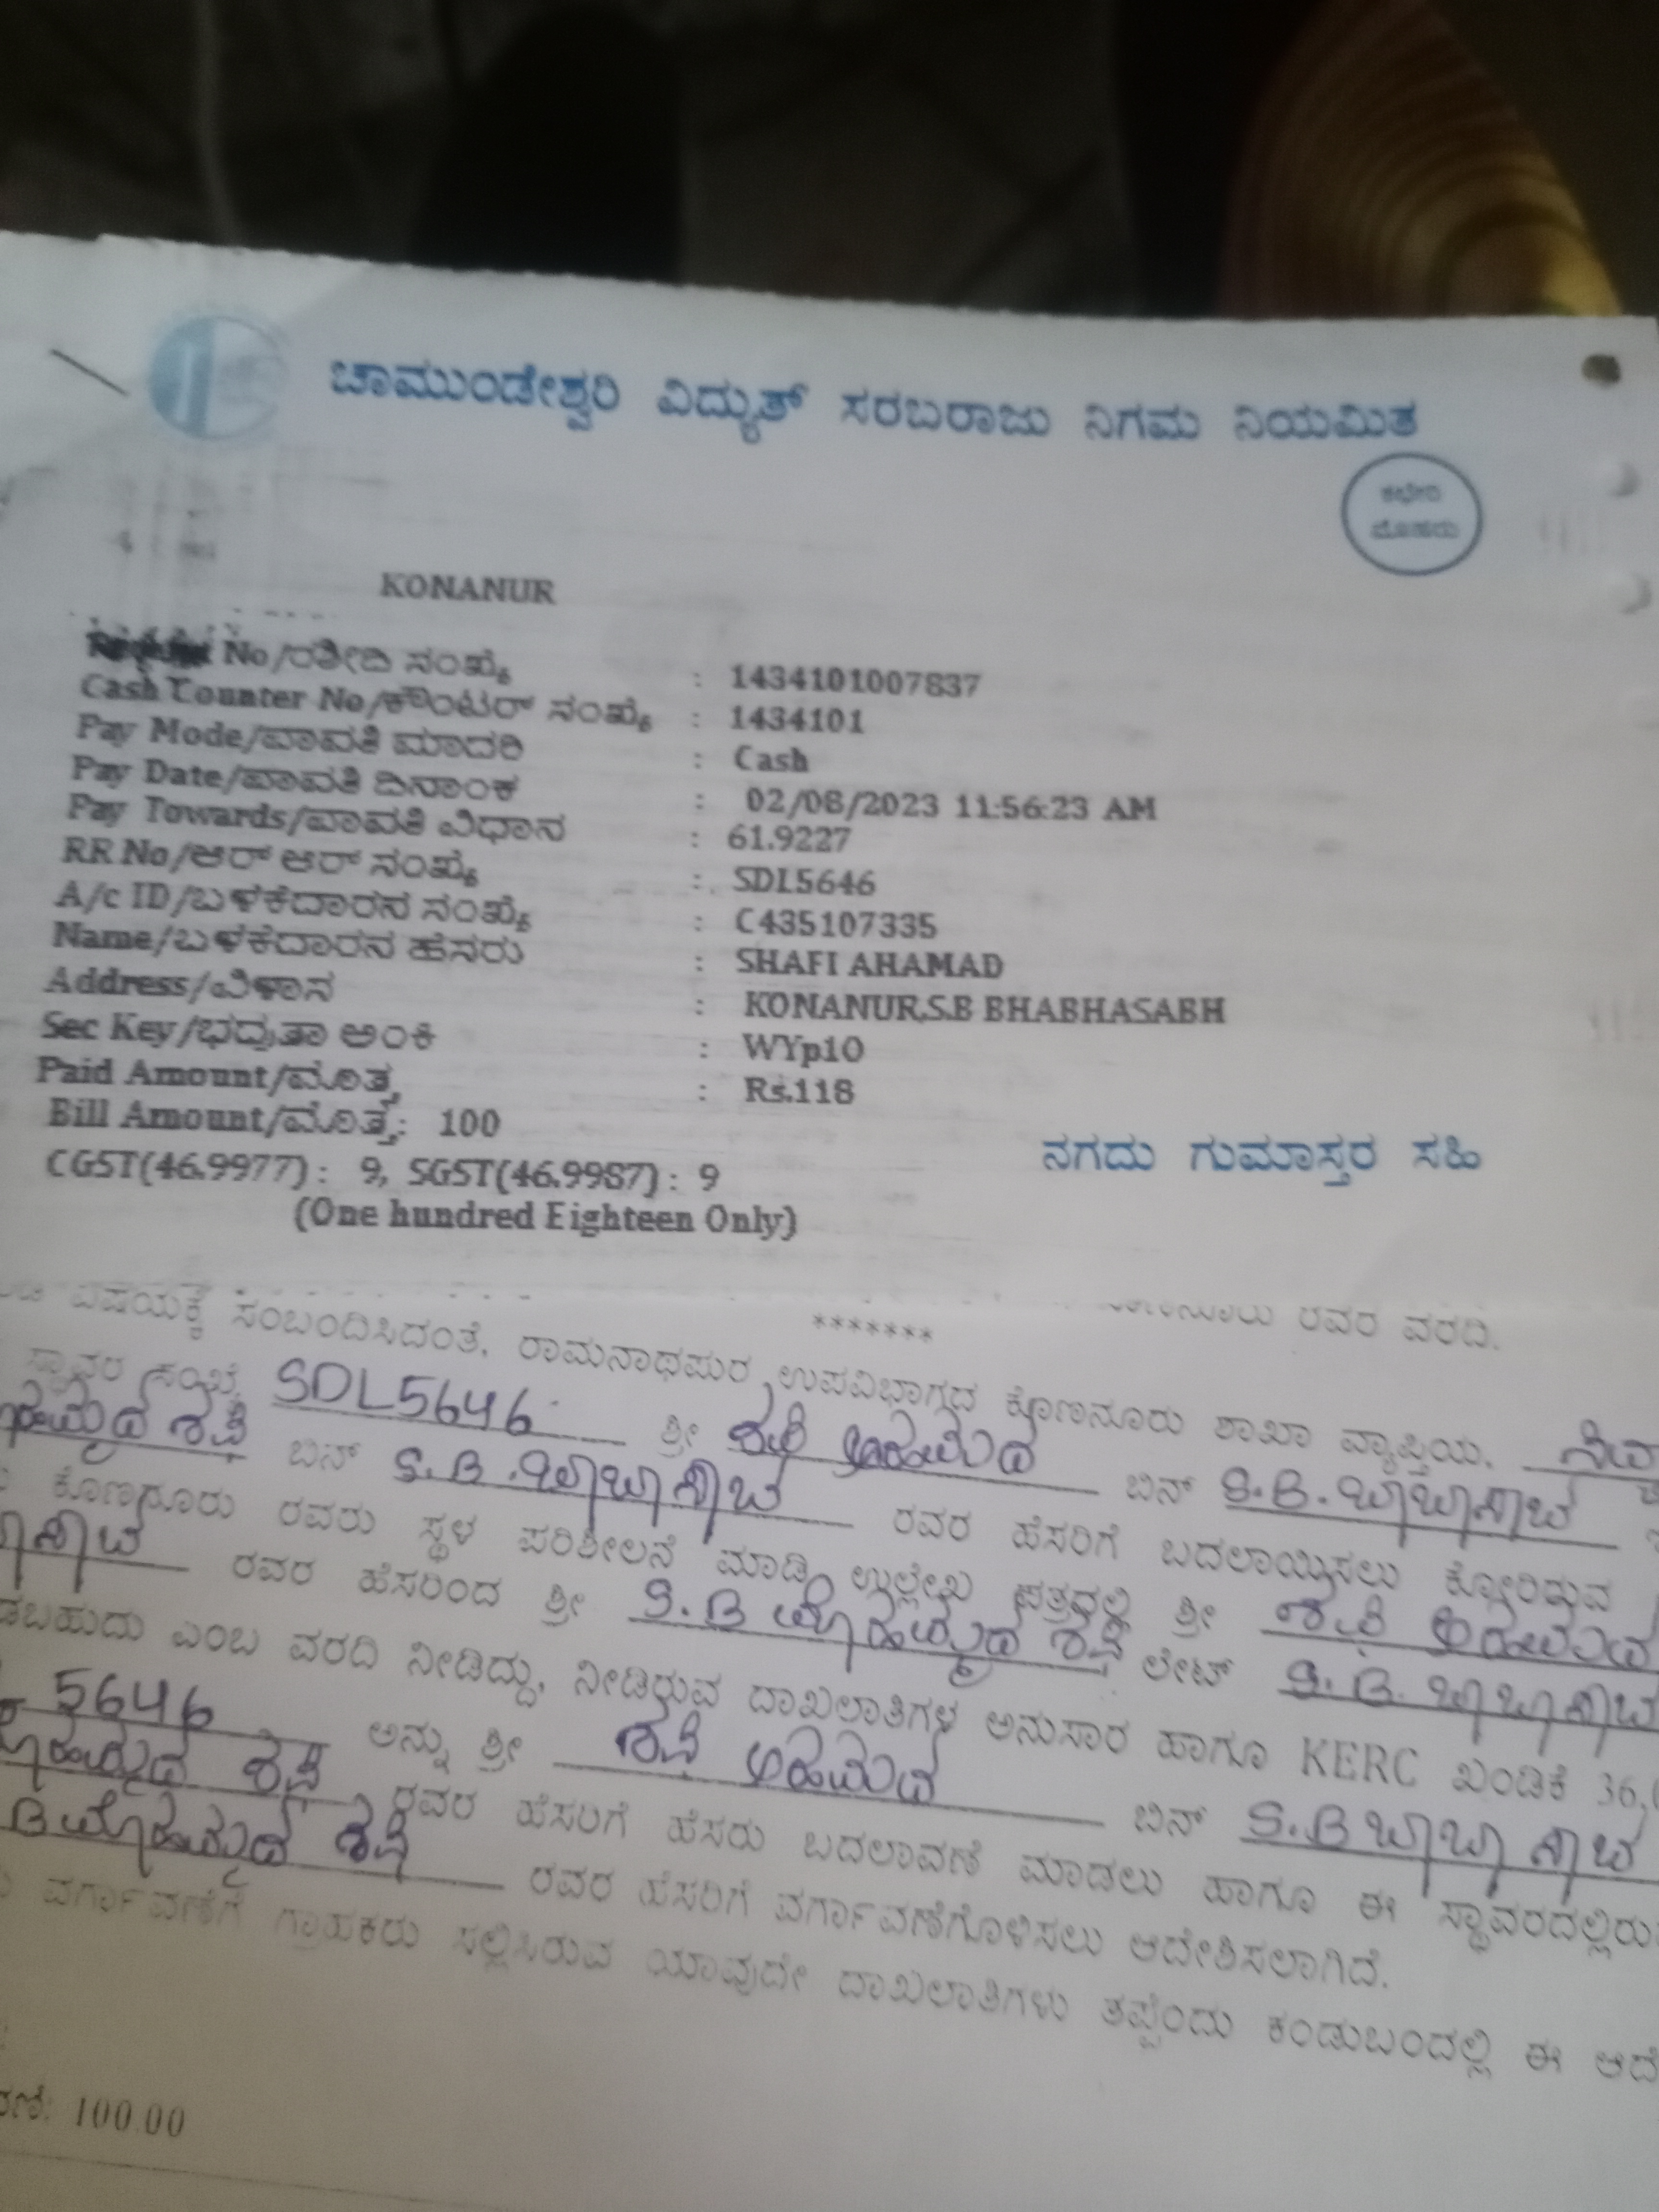 ಚಾಮುಂಡೇಶ್ವರಿ ವಿದ್ಯುತ್ ಸರಬರಾಜು ನಿಗಮ ನಿಯಮಿತ
ಕಛೇರಿ
ಮೊಹರು
KONANUR
No/ರಶೀದಿ ಸಂಖ್ಯೆ : 1434101007837
Cash Counter No/ಕೌಂಟರ್ ಸಂಖ್ಯೆ : 1434101
Pay Mode/ಪಾವತಿ ಮಾದರಿ : Cash
Pay Date/ಪಾವತಿ ದಿನಾಂಕ : 02/08/2023 11:56:23 AM
Pay Towards/ಪಾವತಿ ವಿಧಾನ : 61.9227
RR No/ಆರ್ ಆರ್ ಸಂಖ್ಯೆ : SDL5646
A/c ID/ಬಳಕೆದಾರನ ಸಂಖ್ಯೆ : C435107335
Name/ಬಳಕೆದಾರನ ಹೆಸರು : SHAFI AHAMAD
Address/ವಿಳಾಸ : KONANUR,S.B BHABHASABH
Sec Key/ಭದ್ರತಾ ಅಂಕಿ : WYp10
Paid Amount/ಮೊತ್ತ : Rs.118
Bill Amount/ಮೊತ್ತ: 100
ನಗದು ಗುಮಾಸ್ತರ ಸಹಿ
CGST(46.9977) : 9, SGST(46.9987) : 9
(One hundred Eighteen Only)
ರವರ ವರದಿ.
*******
ವಿಷಯಕ್ಕೆ ಸಂಬಂದಿಸಿದಂತೆ, ರಾಮನಾಥಪುರ ಉಪವಿಭಾಗದ ಕೊಣನೂರು ಶಾಖಾ ವ್ಯಾಪ್ತಿಯ,
ಸ್ಥಾವರ ಸಂಖ್ಯೆ SDL5646 ಶ್ರೀ ಶಫಿ ಅಹಮದ ಬಿನ್ S.B.ಬಾಬಾಸಾಬ
ಶಫಿ ಬಿನ್ S.B.ಬಾಬಾಸಾಬ ರವರ ಹೆಸರಿಗೆ ಬದಲಾಯಿಸಲು ಕೋರಿರುವ
ಕೊಣನೂರು ರವರು ಸ್ಥಳ ಪರಿಶೀಲನೆ ಮಾಡಿ ಉಲ್ಲೇಖ ಪತ್ರದಲ್ಲಿ ಶ್ರೀ ಶಫಿ ಅಹಮದ
ರವರ ಹೆಸರಿಂದ ಶ್ರೀ S.B ಮೊಹಮ್ಮದ ಶಫಿ ಲೇಟ್ S.B. ಬಾಬಾಸಾಬ
ಎಂಬ ವರದಿ ನೀಡಿದ್ದು, ನೀಡಿರುವ ದಾಖಲಾತಿಗಳ ಅನುಸಾರ ಹಾಗೂ KERC ಖಂಡಿಕೆ 36,
5646 ಅನ್ನು ಶ್ರೀ ಶಫಿ ಅಹಮದ ಬಿನ್ S.B ಬಾಬಾ ಸಾಬ
ಶಫಿ ರವರ ಹೆಸರಿಗೆ ಹೆಸರು ಬದಲಾವಣೆ ಮಾಡಲು ಹಾಗೂ ಈ
B ಮೊಹಮ್ಮದ ಶಫಿ ರವರ ಹೆಸರಿಗೆ ವರ್ಗಾವಣೆಗೊಳಿಸಲು ಆದೇಶಿಸಲಾಗಿದೆ.
ವರ್ಗಾವಣೆಗೆ ಗ್ರಾಹಕರು ಸಲ್ಲಿಸಿರುವ ಯಾವುದೇ ದಾಖಲಾತಿಗಳು ತಪ್ಪೆಂದು ಕಂಡುಬಂದಲ್ಲಿ ಈ
100.00